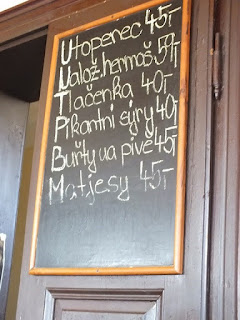 Utopenec 45,-
Nalož. hermoš 59,-
Tlačenka 40,-
Pikantní sýry 40,-
Buřty na pivě 45,-
Matjesy 45,-